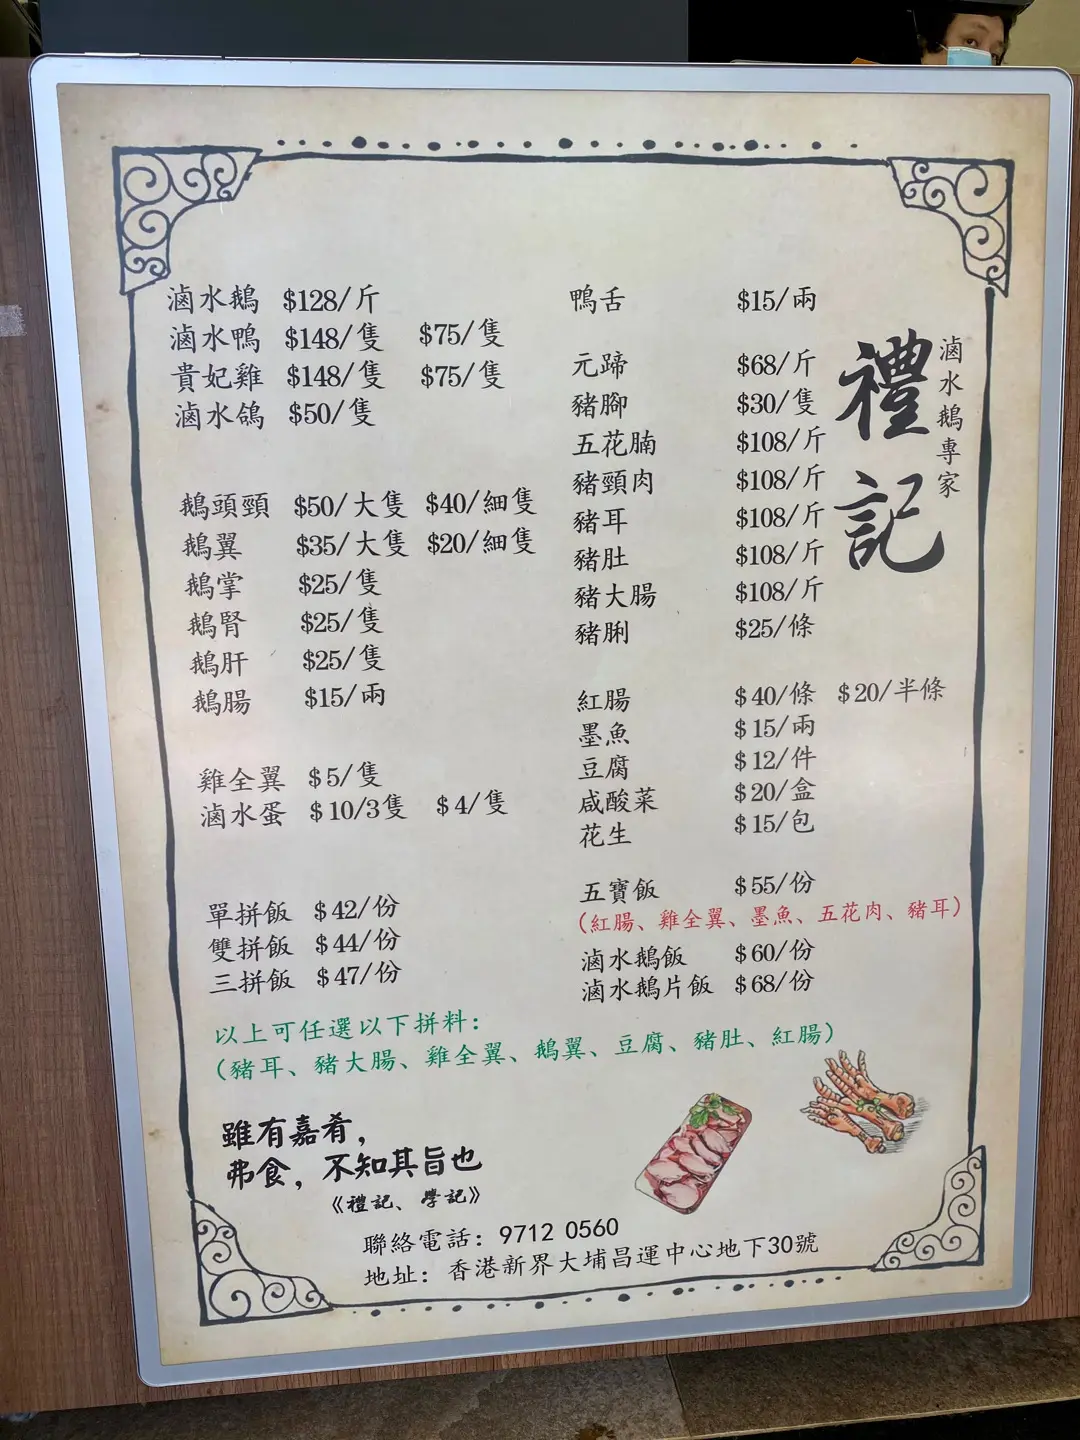 滷水鵝 $128/斤
滷水鴨 $148/隻 $75/隻
貴妃雞 $148/隻 $75/隻
滷水鴿 $50/隻
鵝頭頸 $50/大隻 $40/細隻
鵝翼 $35/大隻 $20/細隻
鵝掌 $25/隻
鵝腎 $25/隻
鵝肝 $25/隻
鵝腸 $15/兩
雞全翼 $5/隻
滷水蛋 $10/3隻 $4/隻
單拼飯 $42/份
雙拼飯 $44/份
三拼飯 $47/份
以上可任選以下拼料：
（豬耳、豬大腸、雞全翼、鵝翼、豆腐、豬肚、紅腸）
鴨舌 $15/兩
元蹄 $68/斤
豬腳 $30/隻
五花腩 $108/斤
豬頸肉 $108/斤
豬耳 $108/斤
豬肚 $108/斤
豬大腸 $108/斤
豬脷 $25/條
紅腸 $40/條 $20/半條
墨魚 $15/兩
豆腐 $12/件
咸酸菜 $20/盒
花生 $15/包
五寶飯 $55/份
（紅腸、雞全翼、墨魚、五花肉、豬耳）
滷水鵝飯 $60/份
滷水鵝片飯 $68/份
禮記
滷水鵝專家
雖有嘉肴，
弗食，不知其旨也
《禮記、學記》
聯絡電話：9712 0560
地址：香港新界大埔昌運中心地下30號